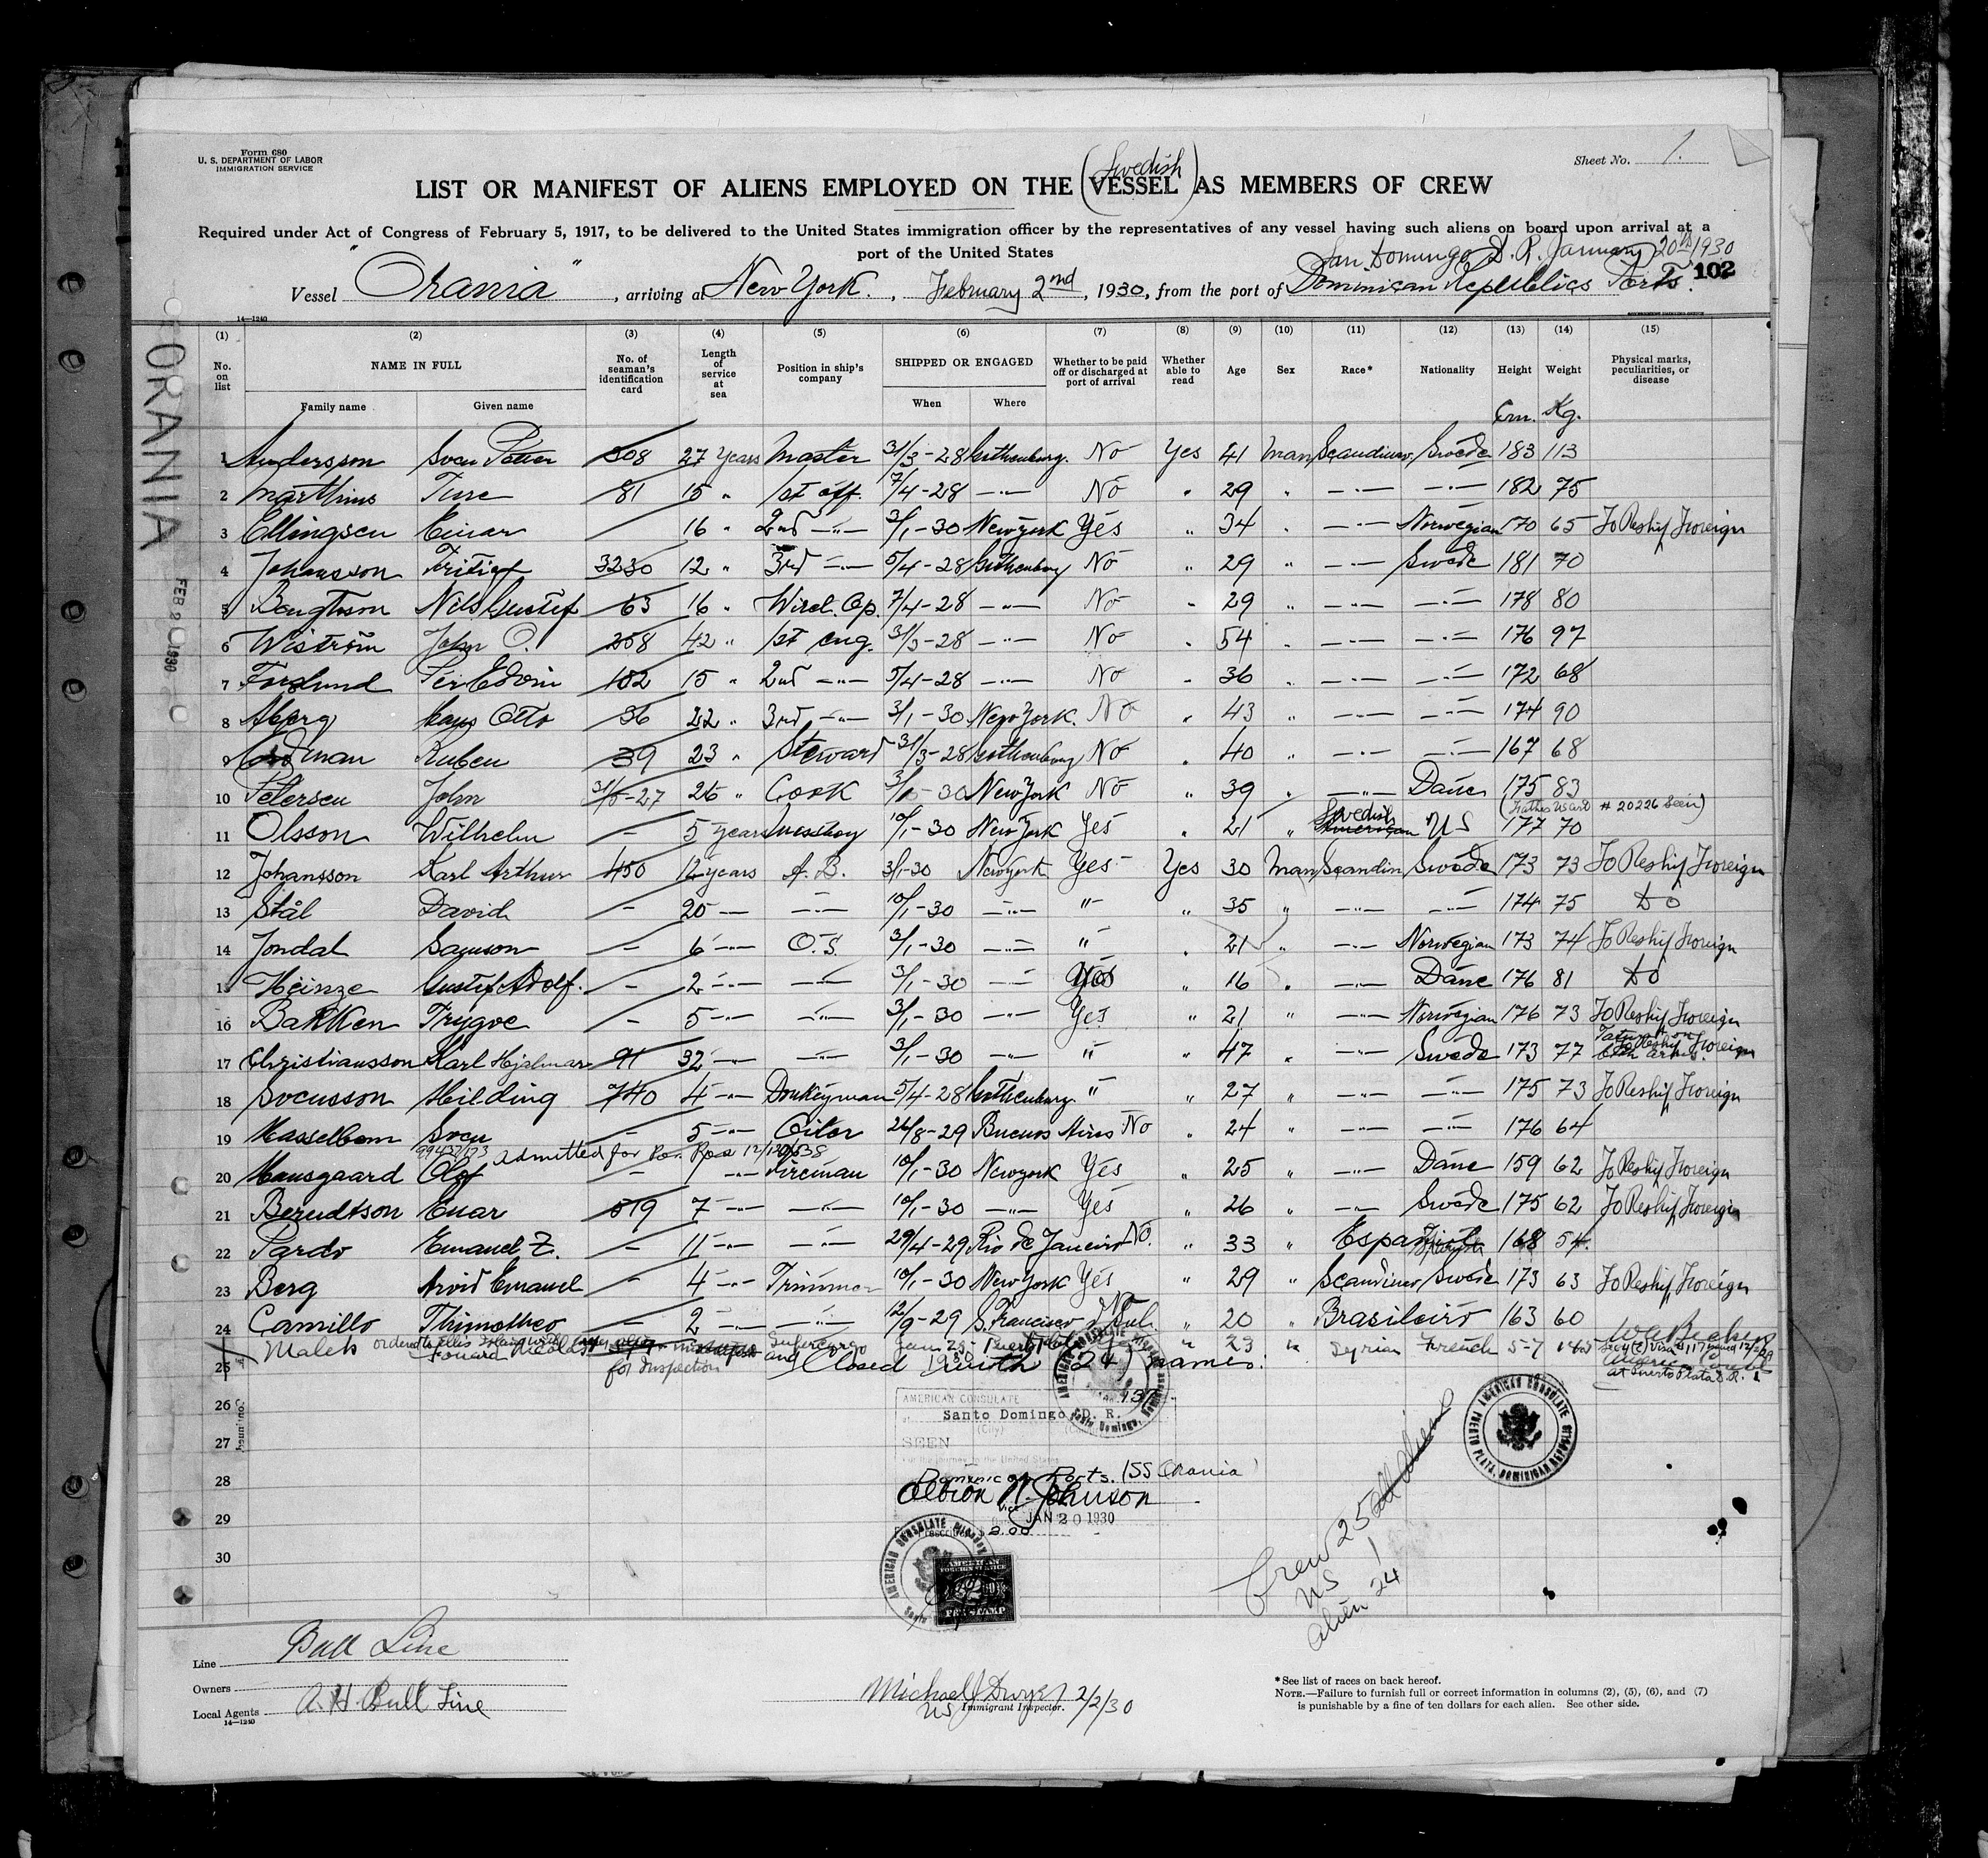 Form 680
U. S. DEPARTMENT OF LABOR
IMMIGRATION SERVICE
Sheet No. 1.
Swedish
LIST OR MANIFEST OF ALIENS EMPLOYED ON THE (VESSEL) AS MEMBERS OF CREW
Required under Act of Congress of February 5, 1917, to be delivered to the United States immigration officer by the representatives of any vessel having such aliens on board upon arrival at a
port of the United States
San Domingo, D. R. January 20th 1930
Vessel "Orania", arriving at New York., February 2nd, 1930, from the port of Dominican Republics Ports. 102
14—1240
ORANIA
FEB 2 1930
(1) (2) (3) (4) (5) (6) (7) (8) (9) (10) (11) (12) (13) (14) (15)
No. on list
NAME IN FULL
Family name
Given name
No. of seaman's identification card
Length of service at sea
Position in ship's company
SHIPPED OR ENGAGED
When
Where
Whether to be paid off or discharged at port of arrival
Whether able to read
Age
Sex
Race*
Nationality
Height
Weight
Physical marks, peculiarities, or disease
Cm. Kg.
1 Andersson Sven Petter 308 27 Years Master 31/3-28 Gothenburg. No Yes 41 Man Scandinav. Swede 183 113
2 Marthins Ture 81 15 " 1st off. 7/4-28 —"— No " 29 " —"— —"— 182 75
3 Ellingsen Einar 16 " 2nd —"— 3/1-30 New York Yes " 34 " —"— Norwegian 170 65 To Reship Foreign
4 Johansson Fritiof 3230 12 " 3rd —"— 5/4-28 Gothenburg No " 29 " —"— Swede 181 70
5 Bengtsson Nils Gustaf 63 16 " Wirel. Op. 7/4-28 —"— No " 29 " —"— —"— 178 80
6 Wiström John O. 258 42 " 1st eng. 31/3-28 —"— No " 54 " —"— —"— 176 97
7 Forslund Per Edvin 102 15 " 2nd —"— 5/4-28 —"— No " 36 " —"— —"— 172 68
8 Åberg Otto 36 22 " 3rd —"— 3/1-30 New York. No " 43 " —"— —"— 174 90
9 Ruben 39 23 " Steward 31/3-28 Gothenburg No " 40 " —"— —"— 167 68
10 Petersen John 26 " Cook 30 New York No " 39 " —"— Dane 175 83
(Fathers US Card # 20226 Seen)
11 Olsson Wilhelm — 5 years Messboy 10/1-30 New York Yes " 21 " Swedish US 177 70
12 Johansson Karl Arthur 450 12 years A. B. 3/1-30 New York Yes Yes 30 Man Scandin Swede 173 73 To Reship Foreign
13 Stål David — 20 —"— —"— 10/1-30 —"— " " 35 " —"— —"— 174 75 Do
14 Jondal Samson — 6 —"— O.S. 3/1-30 —"— " " 21 " —"— Norwegian 173 74 To Reship Foreign
15 Heinze Gustaf Adolf. — 2 —"— —"— 3/1-30 —"— Yes " 16 " —"— Dane 176 81 Do
16 Bakken Trygve — 5 —"— —"— 3/1-30 —"— Yes " 21 " —"— Norwegian 176 73 To Reship Foreign
17 Christiansson Karl Hjalmar 91 32 —"— —"— 3/1-30 —"— " " 47 " —"— Swede 173 77 Tatoo on both arms. To Reship Foreign
18 Svensson Hilding 740 4 —"— Donkeyman 5/4-28 Gothenburg " " 27 " —"— —"— 175 73 To Reship Foreign
19 Hasselbom Sven — 5 —"— Oiler 26/8-29 Buenos Aires No " 24 " —"— —"— 176 64
Admitted for
20 Hansgaard Olof — 1 —"— Fireman 10/1-30 New York Yes " 25 " —"— Dane 159 62 To Reship Foreign
21 Berndtson Enar 519 7 —"— —"— 10/1-30 —"— Yes " 26 " —"— Swede 175 62 To Reship Foreign
22 Pardo Emanuel Z. — 11 —"— —"— 29/4-29 Rio de Janeiro No. " 33 " Español 168 54
23 Berg Arvid Emanuel — 4 —"— Trimmer 10/1-30 New York Yes " 29 " Scandinav Swede 173 63 To Reship Foreign
24 Camillo Thimotheo — 2 —"— —"— 12/9-29 S. Francisco d Sul. No " 20 " Brasileiro 163 60
25 Malek Fouard Nicolas for Inspection Supercargo " 23 " Syrian French 5-7
at Puerto Plata D.R.
Closed with 24 names.
26
27
28
29
30
AMERICAN CONSULATE
at Santo Domingo, D. R.
(City)
SEEN
For the journey to the United States
Dominican Ports. (SS Orania)
Albion W. Johnson
Vice
JAN 20 1930
2.00
AMERICAN CONSULATE
AMERICAN FOREIGN SERVICE
FEE STAMP
AMERICAN CONSULATE
PUERTO PLATA, DOMINICAN REPUBLIC
Crew 25
US 1
Alien 24
Line Bull Line
Owners
Local Agents A. H. Bull Line
14—1240
Michael J Dwyer 2/2/30
US Immigrant Inspector.
*See list of races on back hereof.
NOTE.—Failure to furnish full or correct information in columns (2), (5), (6), and (7)
is punishable by a fine of ten dollars for each alien. See other side.